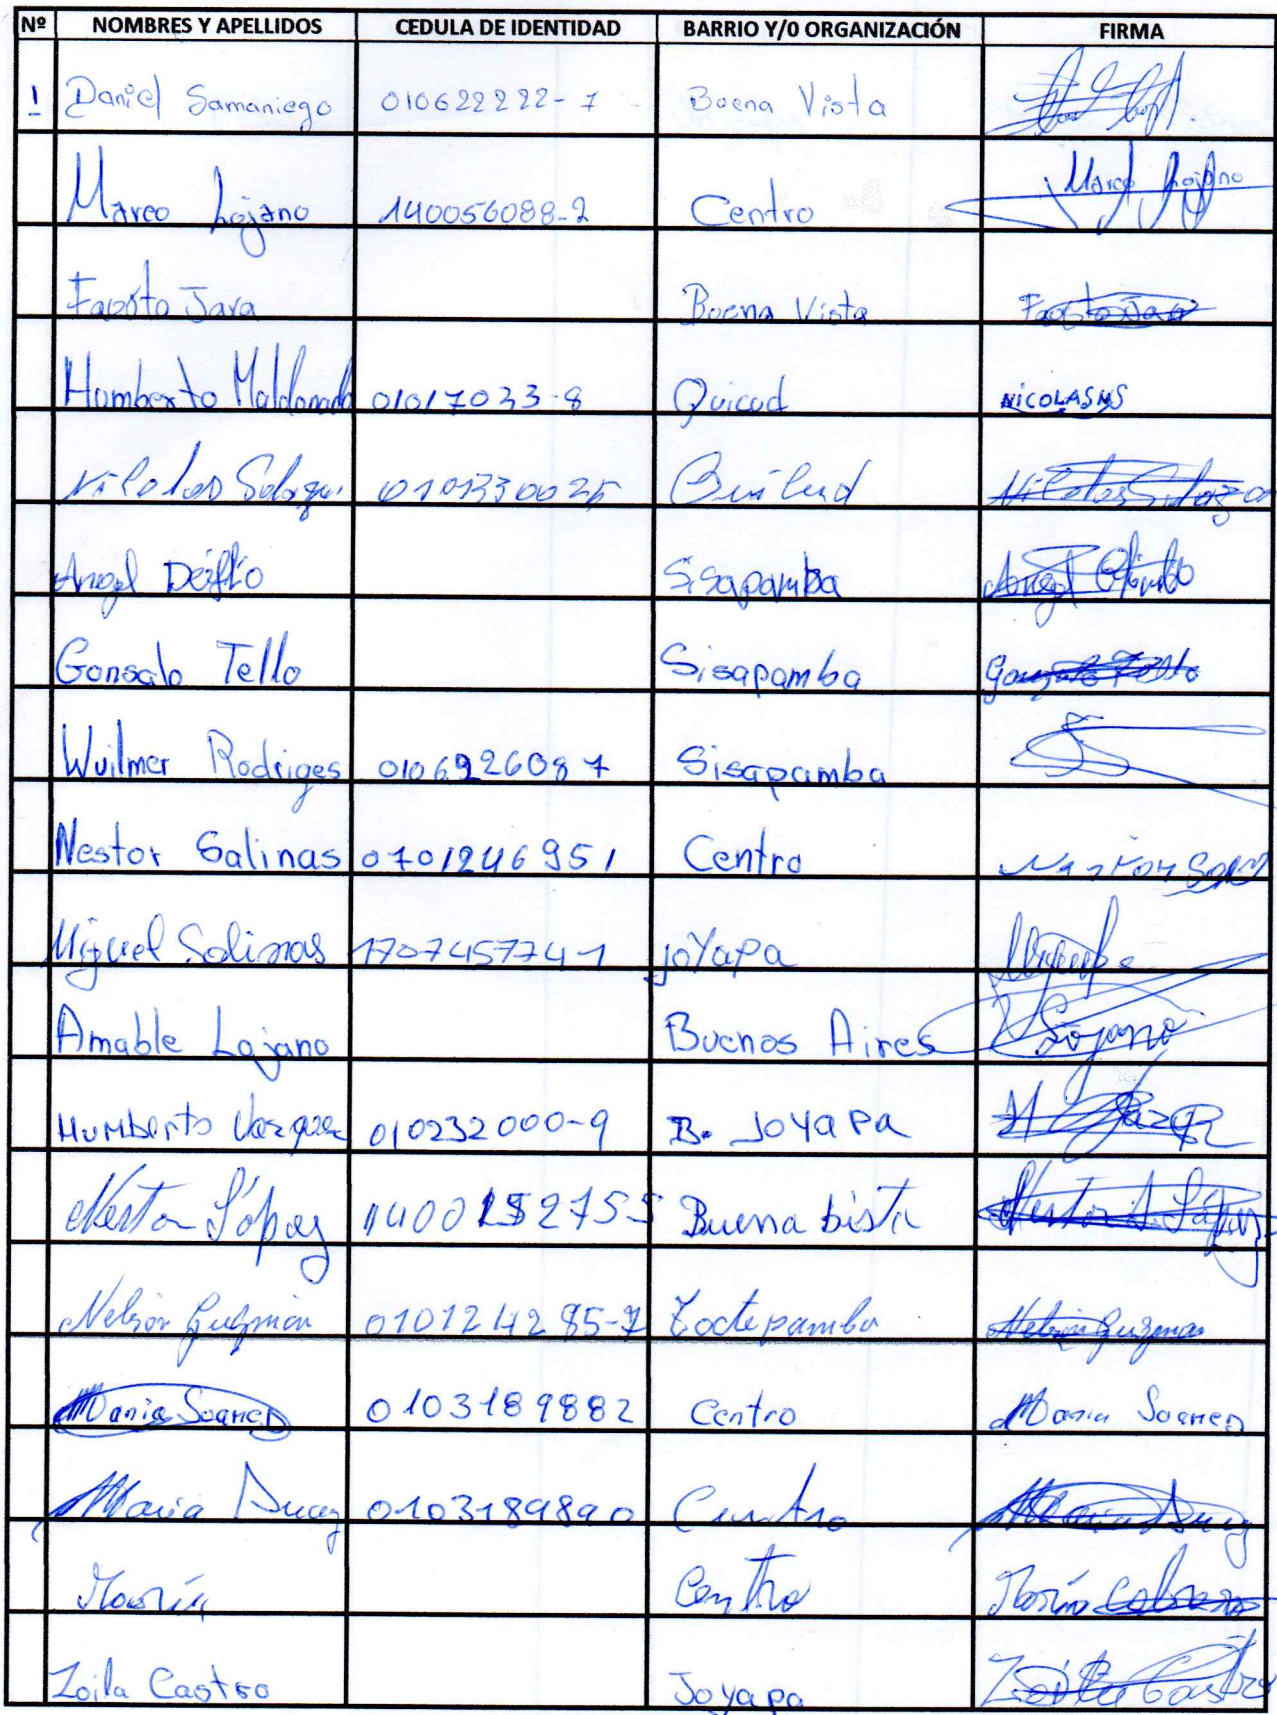 Nº NOMBRES Y APELLIDOS CEDULA DE IDENTIDAD BARRIO Y/0 ORGANIZACIÓN FIRMA
1 Daniel Samaniego 010622222-7 Buena Vista
Marco Lojano 140056088-2 Centro Marco Lojano
Fausto Jara Buena Vista Fausto Jara
Humberto Maldonado 01017033-8 Quicud NICOLASMS
Nicolas 0101330025 Nicolas
Angel Sisapamba Angel
Gonsalo Tello Sisapamba Gonzalo Tello
Wuilmer Rodriges 0106926087 Sisapamba
Nestor Salinas 0701246951 Centro
Miguel Salinas 170745774-1 joyapa
Amable Lojano Buenos Aires Lojano
Humberto Vazquez 010232000-9 B. Joyapa
Nestor López 1400152755 Buena bista Nestor A. López
Nelson Guzmán 010124285-7 Zoctepamba Nelson Guzman
Maria Suarez 0103189882 Centro Maria Suarez
Maria 0103189890 Centro Maria
María Centro María Cabrera
Zoila Castro Joyapa Zoila Castro